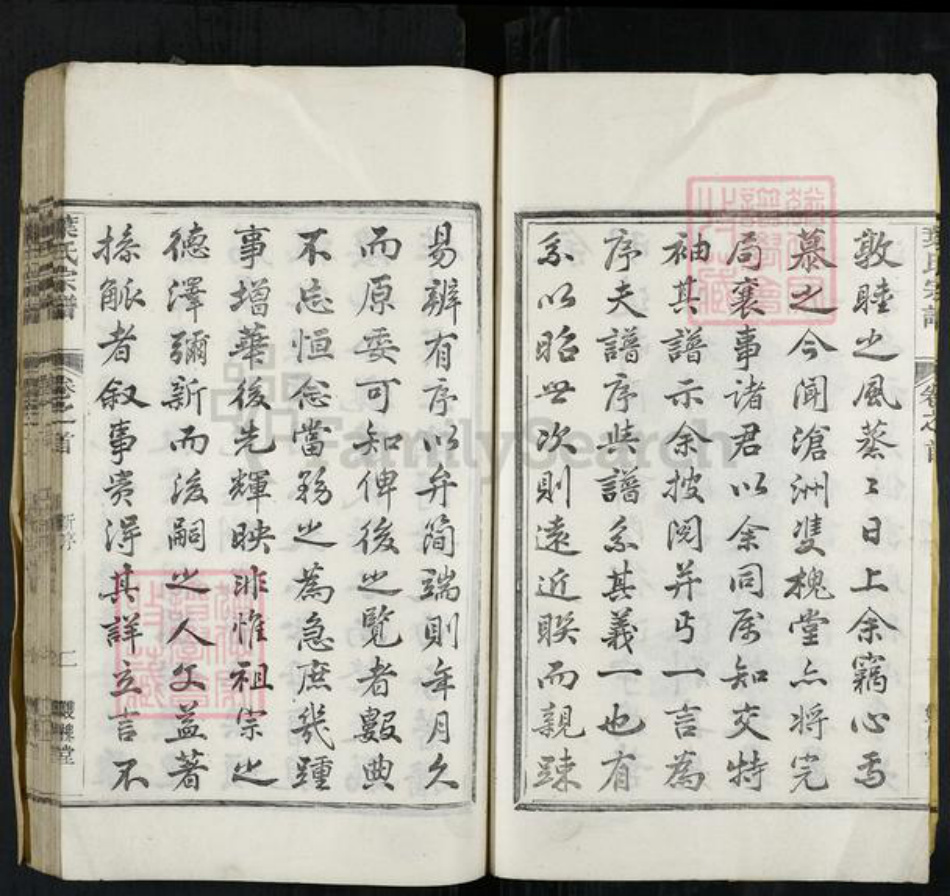 敦睦之風蒸〻日上余竊心焉
慕之今聞滄洲雙槐堂亦將完
局襄事諸君以余同屬知交特
袖其譜示余披閱并丐一言為
序夫譜序與譜系其義一也有
系以昭世次則遠近聯而親疎
易辨有序以弁簡端則年月久
而原委可知俾後之覽者數典
不忘恒念當務之為急庶幾踵
事增華後先輝映非惟祖宗之
德澤彌新而後嗣之人文益著
操觚者叙事貴得其詳立言不
葉氏宗譜
卷之首
新序
二
雙槐堂
FamilySearch